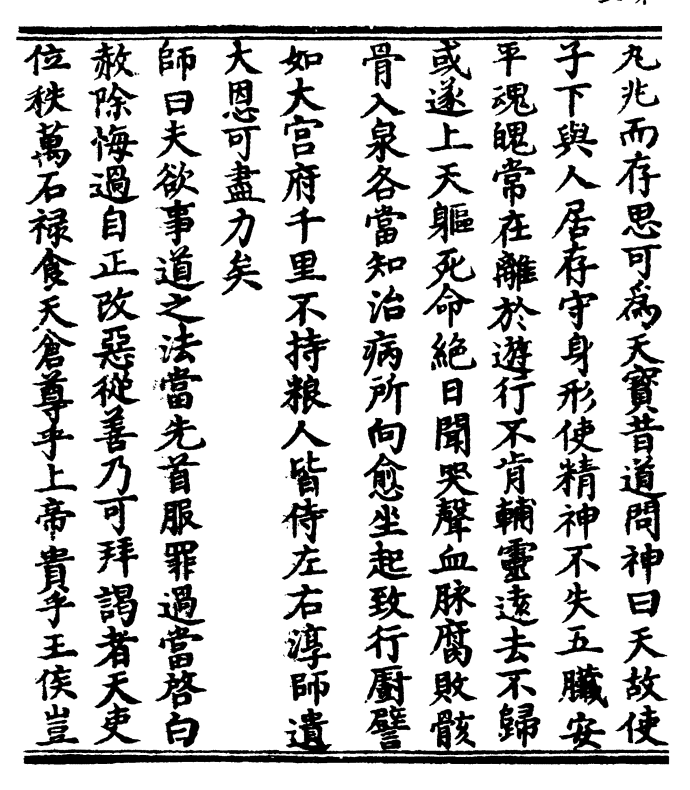 九兆而存思可爲天寶昔道問神曰天故使
子下與人居存守身形使精神不失五臟安
平魂魄常在離於遊行不肯輔靈遠去不歸
或遂上天軀死命絶日聞哭聲血脉腐敗骸
骨入泉各當知治病所向愈坐起致行廚譬
如大宫府千里不持粮人皆侍左右淳師遺
大恩可盡力矣
師曰夫欲事道之法當先首服罪過當啓白
赦除悔過自正改惡從善乃可拜謁者天吏
位秩萬石禄食天倉尊乎上帝貴乎王侯豈